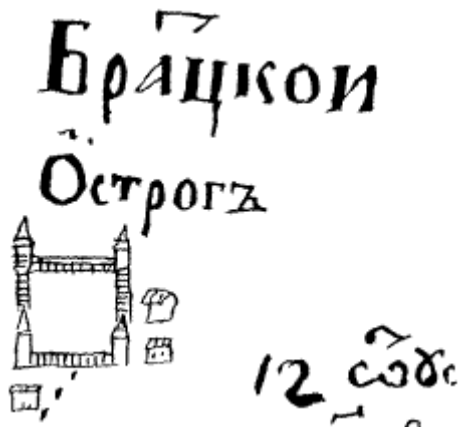 Брацкои
Острогъ
12